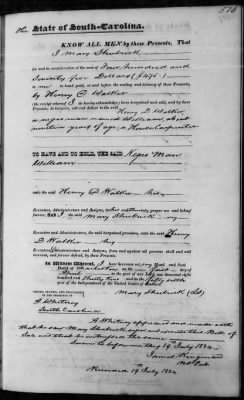 The State of South-Carolina.
KNOW ALL MEN by these Presents, That
I Mary Shubrick
for and in consideration of the sum of Four hundred and
Twenty five Dollars
to me in hand paid, at and before the sealing and delivery of these Presents,
by Henry D Walther
(the receipt whereof I do hereby acknowledge) have bargained and sold, and by these
Presents, do bargain, sell and deliver to the said Henry D Walther
a negro man named William, about
nineteen years of age, a House Carpenter
TO HAVE AND TO HOLD, THE SAID Negro Man
William
unto the said Henry D Walther his
Executors, Administrators and Assigns, to his only proper use and behoof
forever. And I the said Mary Shubrick my
Executors and Administrators, the said bargained premises, unto the said Henry
D Walther his
Executors, Administrators and Assigns, from and against all persons shall and will
warrant, and forever defend, by these Presents.
In Witness Whereof, I have hereunto set my Hand and Seal
Dated at Charleston on the first day of
in the year of our Lord, one thousand eight
hundred and thirty four and in the fifty
year of the Independence of the United States of
Mary Shubrick (LS)
SIGNED, SEALED, AND DELIVERED
IN THE PRESENCE OF
A Whitney
South Carolina
A Whitney appeared and made oath
that he saw Mary Shubrick sign and execute this Bill of
Sale and that he witnessed the same
Sworn to before me this 19 July 1834
James Kingman
Not Pub
Recorded 19 July 1834